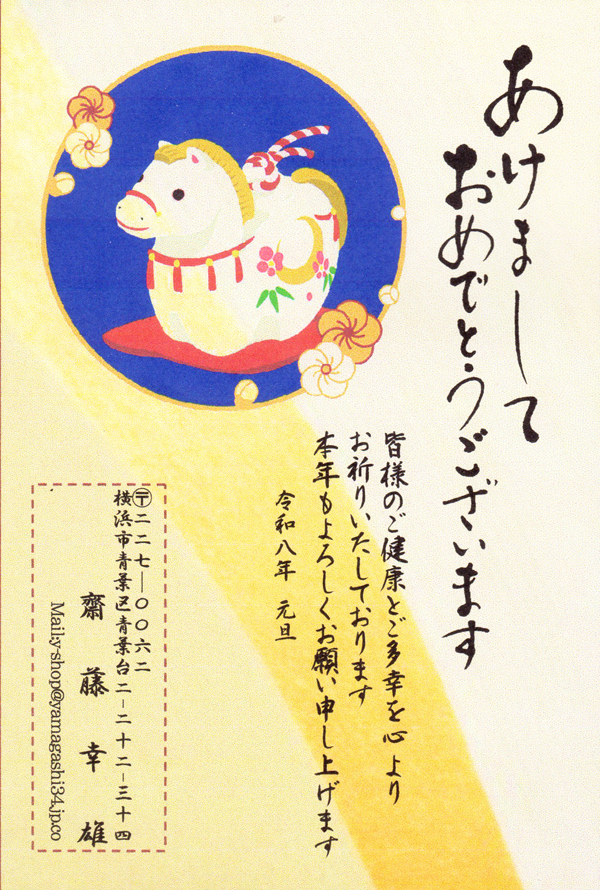 あけまして
おめでとうございます
皆様のご健康とご多幸を心より
お祈りいたしております
本年もよろしくお願い申し上げます
令和八年 元旦
〒二二七―〇〇六二
横浜市青葉区青葉台二―二十二―三十四
齋藤幸雄
Mail.y-shop@yamagashi34.jp.co